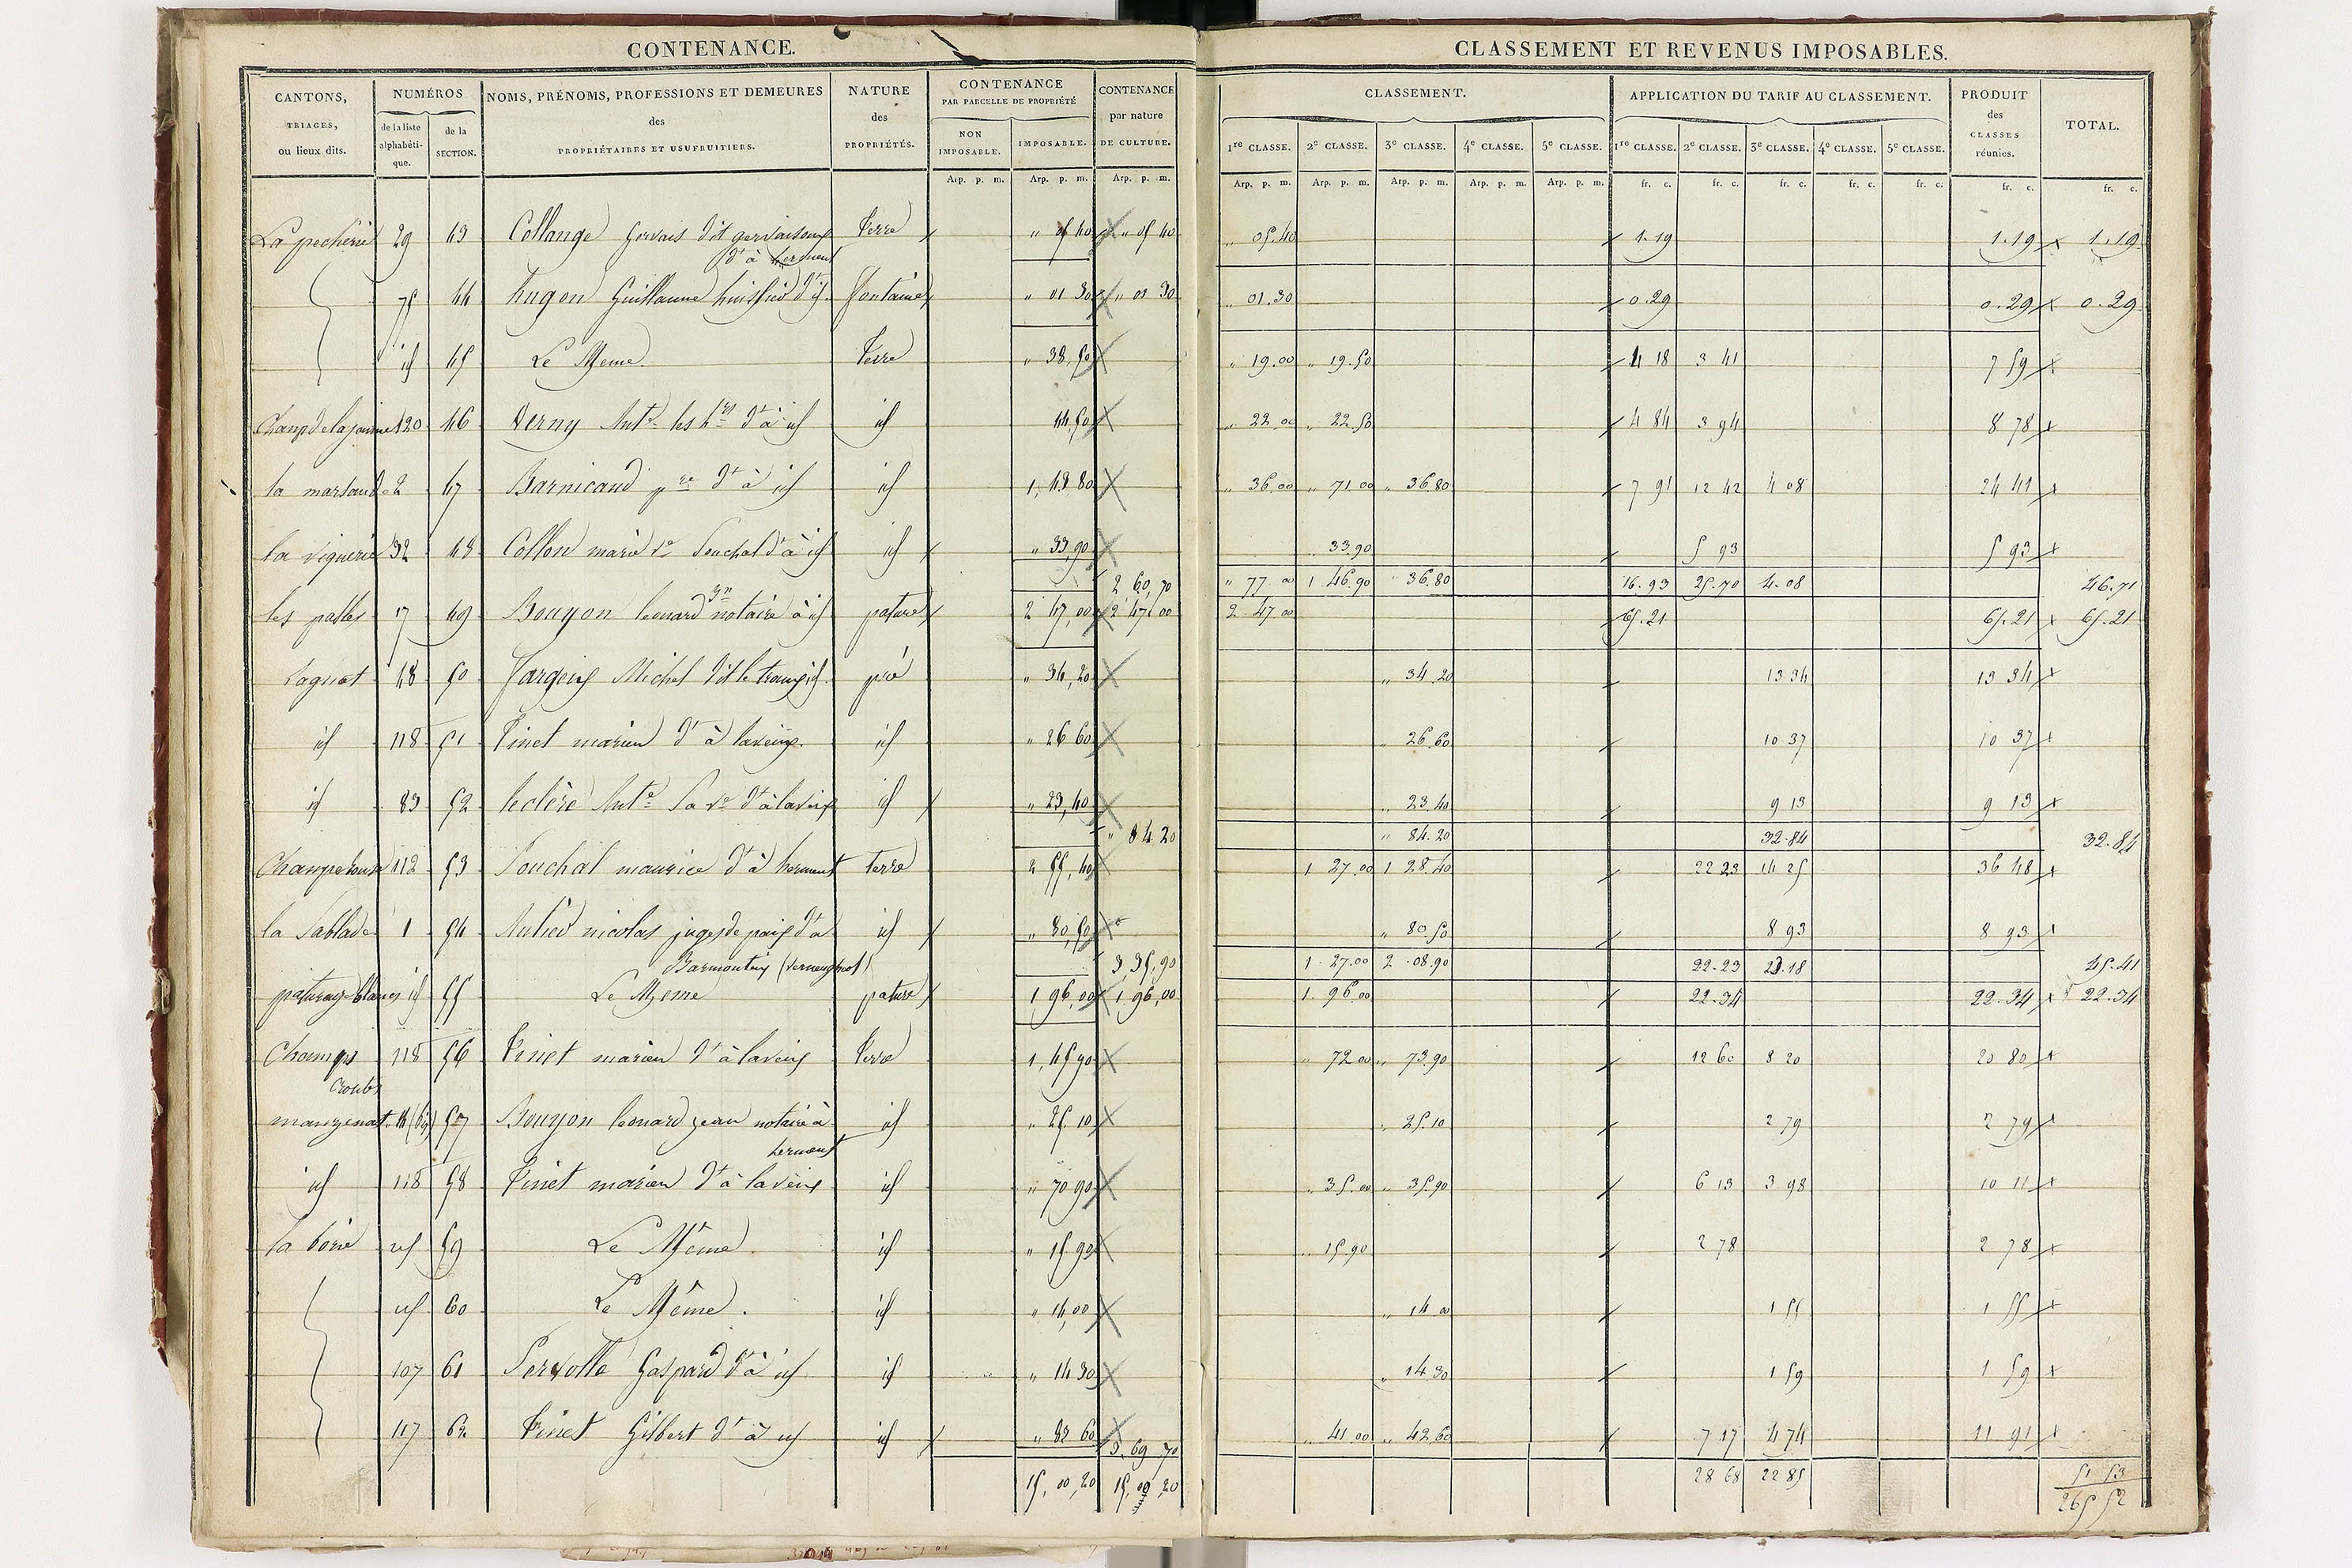 CONTENANCE.
CLASSEMENT ET REVENUS IMPOSABLES.
CANTONS, TRIAGES, ou lieux dits.
NUMÉROS
de la liste alphabétique.
de la SECTION.
NOMS, PRÉNOMS, PROFESSIONS ET DEMEURES des PROPRIÉTAIRES ET USUFRUITIERS.
NATURE des PROPRIÉTÉS.
CONTENANCE PAR PARCELLE DE PROPRIÉTÉ
NON IMPOSABLE.
IMPOSABLE.
CONTENANCE par nature DE CULTURE.
CLASSEMENT.
1re CLASSE. 2e CLASSE. 3e CLASSE. 4e CLASSE. 5e CLASSE.
APPLICATION DU TARIF AU CLASSEMENT.
1re CLASSE. 2e CLASSE. 3e CLASSE. 4e CLASSE. 5e CLASSE.
PRODUIT des CLASSES réunies.
TOTAL.
Arp. p. m. Arp. p. m. Arp. p. m. Arp. p. m. Arp. p. m. Arp. p. m. Arp. p. m. Arp. p. m. fr. c. fr. c. fr. c. fr. c. fr. c. fr. c. fr. c.
La pecherie 29 43 Collange Gervais dit gervaisoux Terre " 05 40 " 05 40 " 05.40 1.19 1.19 1.19
dt à herment
75 44 hugon Guillaume huissier dt id fontaine " 01 30 " 01 30 " 01.30 0.29 0.29 0.29
id 45 Le Meme. Terre " 38,50 " 19.00 " 19.50 4 18 3 41 7 59
120 46 Verny Ante les hrs dt à id id 44,50 " 22 00 " 22.50 4 84 3 94 8 78
la marsaude 2 47 Barnicaud pre dt à id id 1,43 80 " 36,00 " 71.00 " 36 80 7 91 12 42 4 08 24 41
la viguerie 32 48 Collon marie ve Souchal dt à id id " 33,90 33.90 5 93 5 93
2 60,70 " 77 00 1 46.90 " 36.80 16.93 25.70 4.08 46.71
17 49 Bouyon leonard Jn notaire à id pature 2 47,00 2 47 00 2 47.00 65.21 65.21 65.21
Laguat 48 50 Michel dit le id pré " 34,20 " 34.20 13 34 13 34
id 118 51 Tinet marien dt à laveix id " 26 60 " 26.60 10 37 10 37
id 83 52 leclère Ante Sa ve dt à laveix id " 23,40 " 23.40 9 13 9 13
" 84 20 " 84.20 32.84 32.84
112 53 Souchal maurice dt à herment terre 2 55,40 1 27.00 1 28.40 22 23 14 25 36 48
la Sablade 1 54 nicolas juge de paix dt à id " 80,50 " 80.50 8 93 8 93
Barmonteix (verneugheol)
3,35,90 1 27.00 2 08.90 22.23 23.18 45.41
id 55 Le Meme pature 1 96,00 1 96,00 1 96.00 22.34 22.34 22.34
Champs 118 56 Tinet marien dt à laveix Terre 1,45 90 " 72.00 " 73.90 12 60 8 20 20 80
croutes
manzenat 57 Bouyon leonard jean notaire à id " 25.10 " 25.10 2 79 2 79
herment
id 118 58 Tinet marien dt à laveix id " 70 90 " 35.00 " 35.90 6 13 3 98 10 11
la borie id 59 Le Même id " 15 90 " 15.90 2 78 2 78
id 60 Le Même. id " 14,00 " 14 00 1 55 1 55
107 61 Servolle Gaspard dt à id id " 14 30 " 14 30 1 59 1 59
117 62 Tinet Gilbert dt à id id " 83 60 " 41 00 " 42 60 7 17 4 74 11 91
3,69 70
15,00,20 15,00,20 28 68 22 85 51 53
265 52